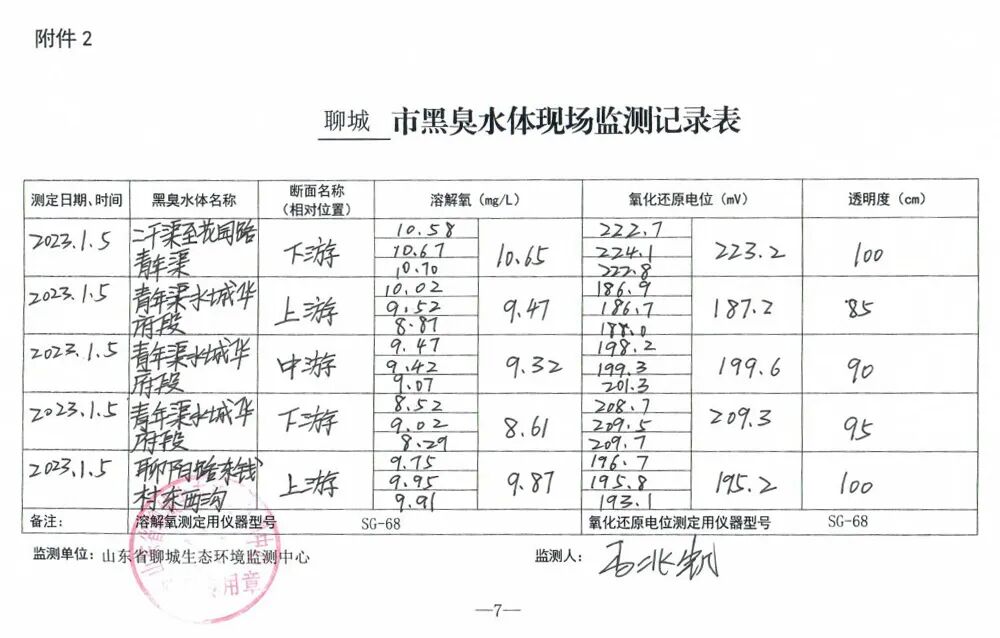 附件2
聊城 市黑臭水体现场监测记录表
测定日期、时间 黑臭水体名称 断面名称(相对位置) 溶解氧(mg/L) 氧化还原电位(mV) 透明度(cm)
2023.1.5 二干渠至花园路 下游 10.58 10.65 222.7 223.2 100
青年渠 10.67 224.1
10.70 222.8
2023.1.5 青年渠水城华 上游 10.02 9.47 186.9 187.2 85
府段 9.52 186.7
8.87 188.0
2023.1.5 青年渠水城华 中游 9.47 9.32 198.2 199.6 90
府段 9.42 199.3
9.07 201.3
2023.1.5 青年渠水城华 下游 8.52 8.61 208.7 209.3 95
府段 9.02 209.5
8.29 209.7
2023.1.5 聊阳路东钱 上游 9.75 9.87 196.7 195.2 100
村东西沟 9.95 195.8
9.91 193.1
备注: 溶解氧测定用仪器型号 SG-68 氧化还原电位测定用仪器型号 SG-68
监测单位: 山东省聊城生态环境监测中心 监测人:
用章
—7—